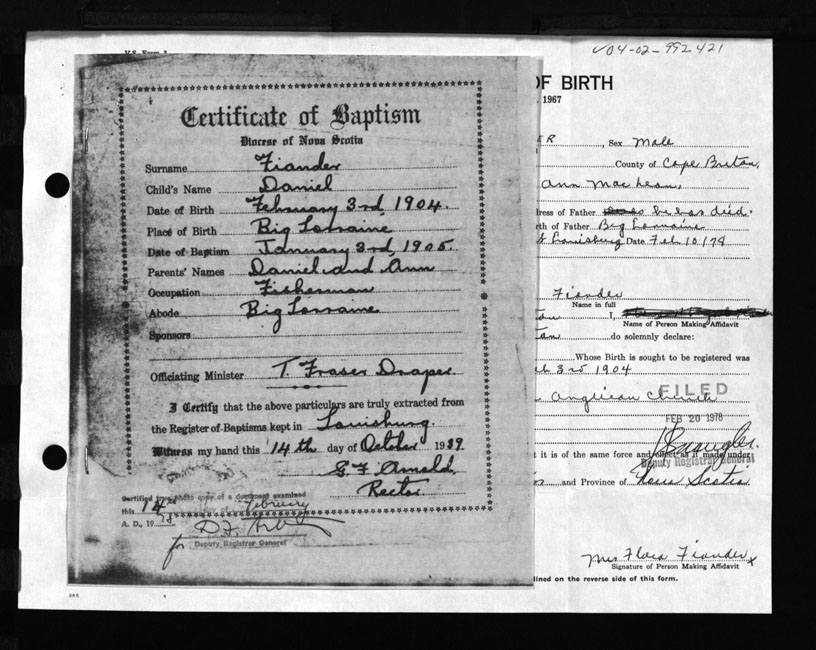 ✓04-02-992421
OF BIRTH
1967
Certificate of Baptism
Diocese of Nova Scotia
Surname Fiander
Child's Name Daniel
Date of Birth February 3rd, 1904.
Place of Birth Big Lorraine
Date of Baptism January 3rd, 1905.
Parents' Names Daniel and Ann
Occupation Fisherman
Abode Big Lorraine
Sponsors
Officiating Minister T. Fraser Draper
I Certify that the above particulars are truly extracted from
the Register of Baptisms kept in Louisburg.
Witness my hand this 14th day of October 1939
Rector
Certified true photo copy of a document examined
this 14th February
A. D., 19 78
for Deputy Registrar General
ER, Sex Male
County of Cape Breton
Ann MacLean,
ress of Father he has died.
rth of Father Big Lorraine
Louisburg Date Feb 10/78
Fiander
Name in full
I,
Name of Person Making Affidavit
do solemnly declare:
Whose Birth is sought to be registered was
3rd 1904
Anglican Church
FILED
FEB 20 1978
t it is of the same force and effect as if made under
Deputy Registrar General
and Province of Nova Scotia
Mrs Flora Fiander x
Signature of Person Making Affidavit
lined on the reverse side of this form.